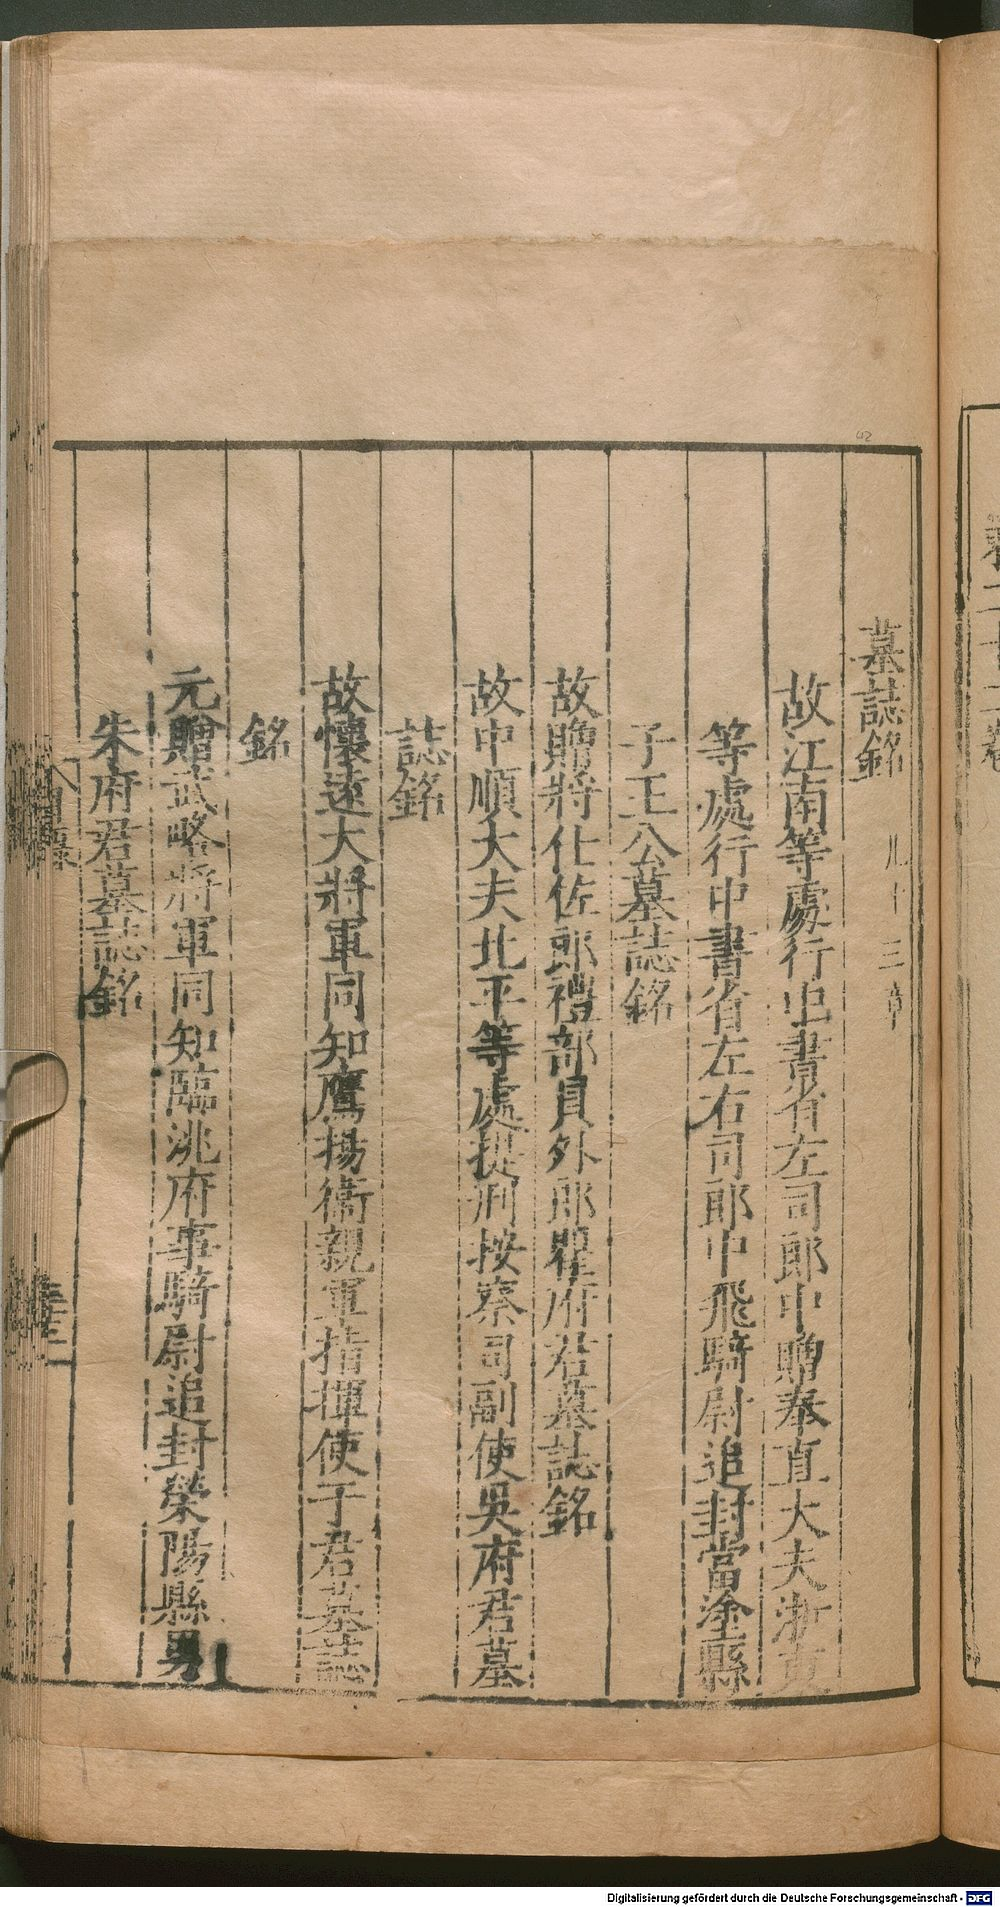 墓誌銘 凡十三章
故江南等處行中書省左司郎中贈奉直大夫浙東
等處行中書省左右司郎中飛騎尉追封當塗縣
子王公墓誌銘
故贈將仕佐郎禮部員外郎瞿府君墓誌銘
故中順大夫北平等處提刑按察司副使吳府君墓
誌銘
故懷遠大將軍同知鷹揚衞親軍指揮使于君墓誌
銘
元贈武略將軍同知臨洮府事騎尉追封滎陽縣男
朱府君墓誌銘
目錄
Digitalisierung gefördert durch die Deutsche Forschungsgemeinschaft - DFG